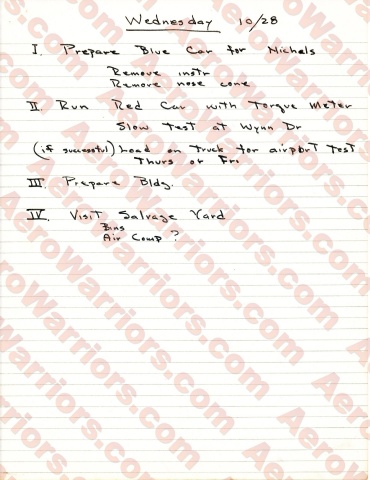 Wednesday 10/28
I. Prepare Blue Car for Nichels
Remove instr
Remove nose cone
II. Run Red Car with Torque Meter
Slow Test at Wynn Dr
(if successful) Load on Truck for airport Test
Thurs or Fri
III. Prepare Bldg.
IV. Visit Salvage Yard
Bins
Air Comp ?
AeroWarriors.com